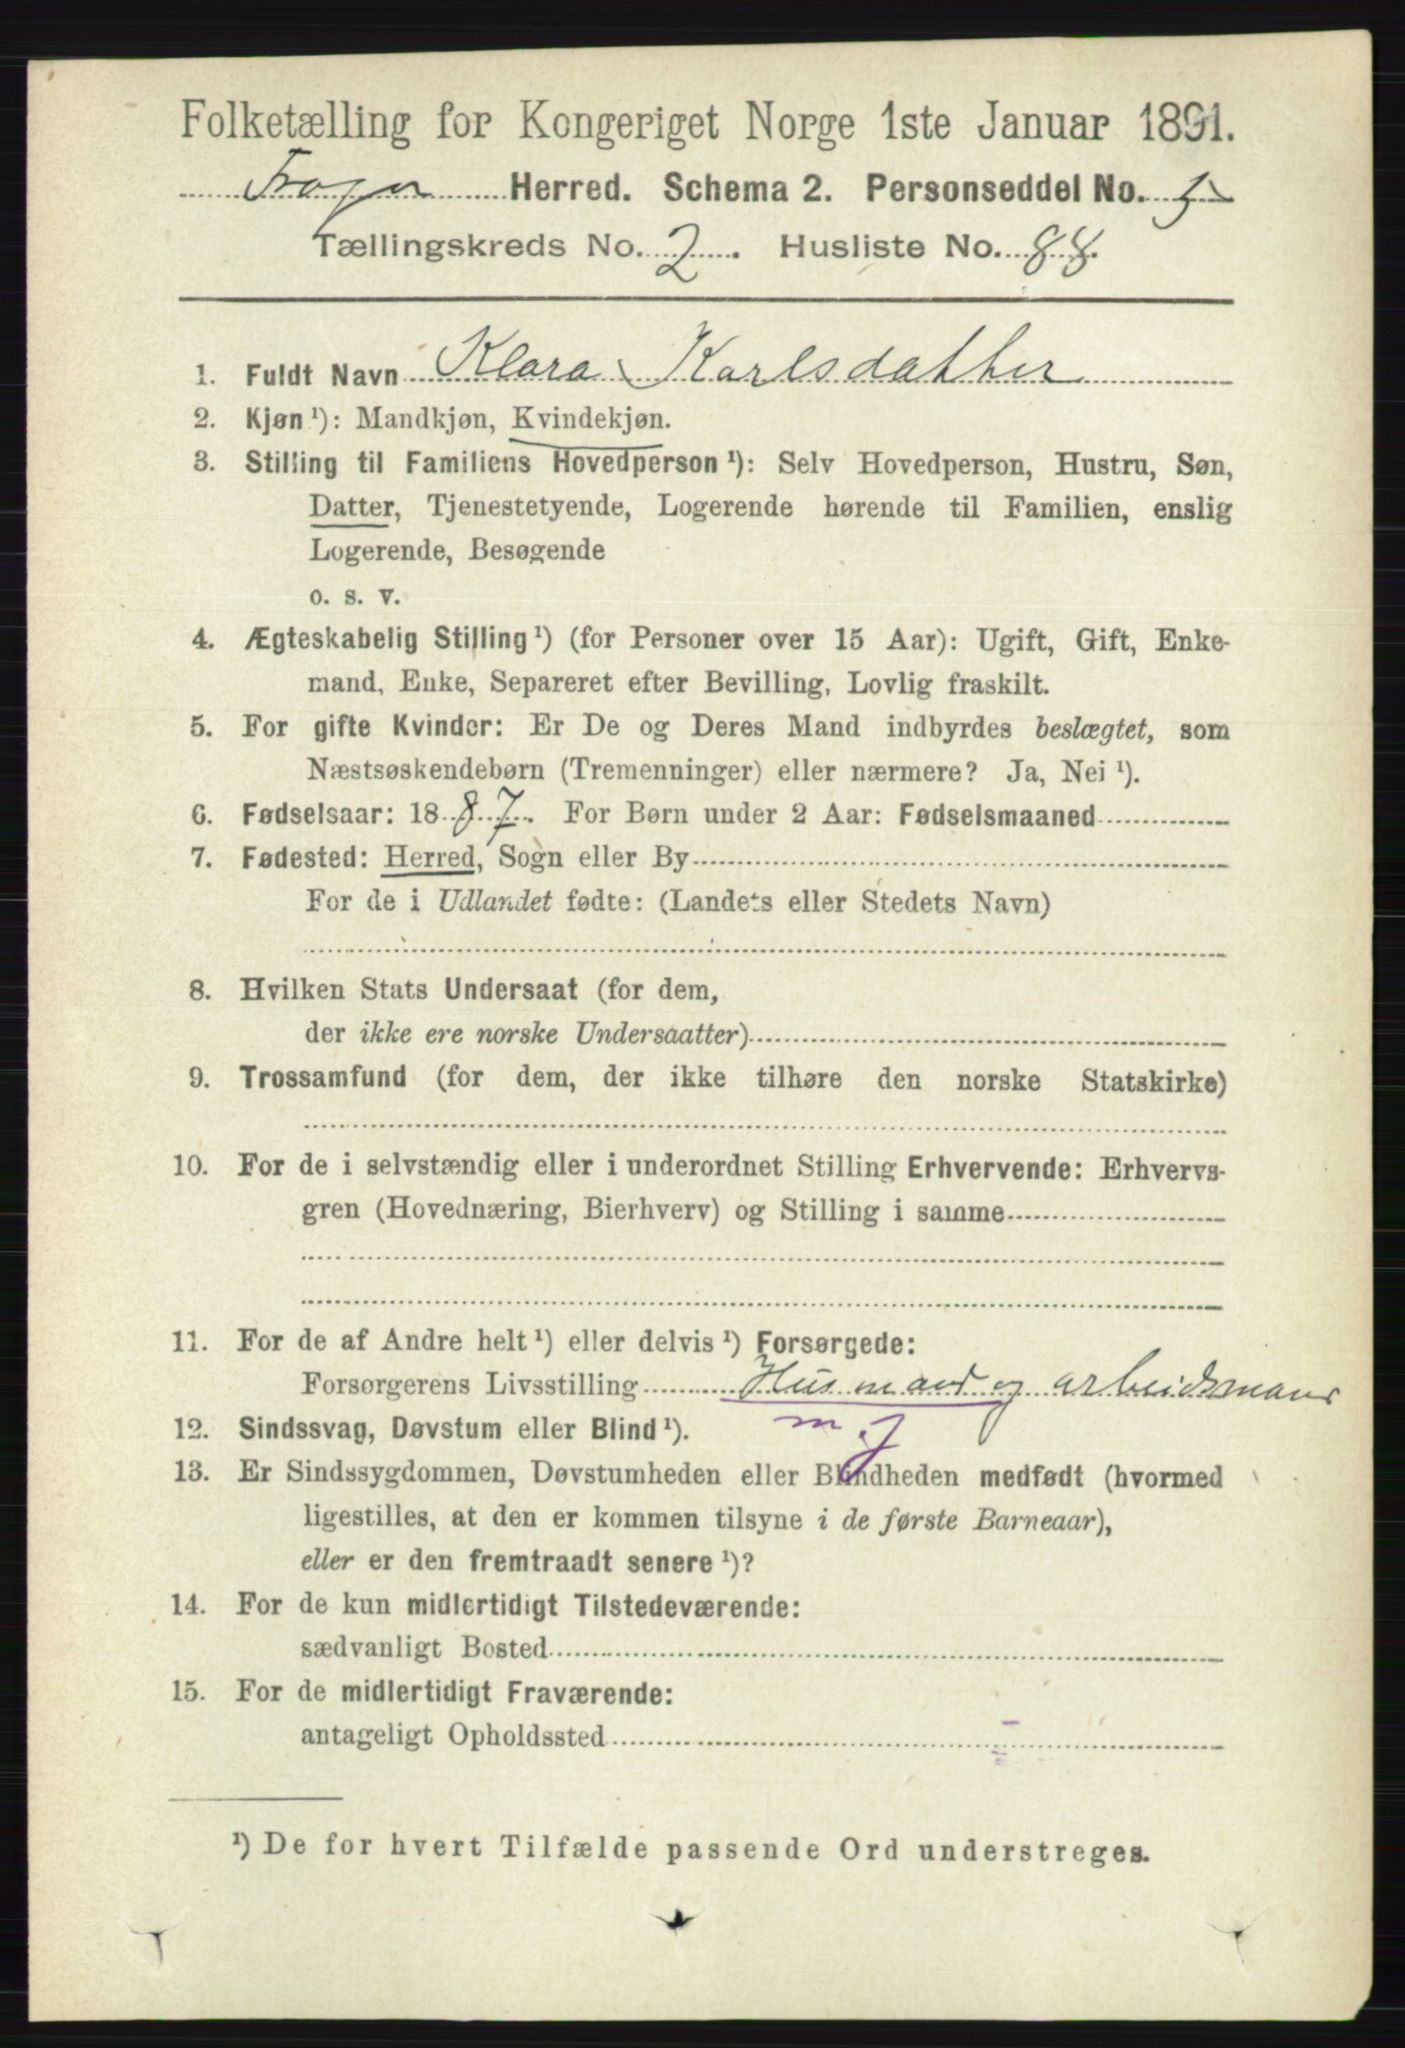 Folketælling for Kongeriget Norge 1ste Januar 1891.
Frogn Herred. Schema 2. Personseddel No. 5
Tællingskreds No. 2. Husliste No. 88.
1. Fuldt Navn Klara Karlsdatter
2. Kjøn ¹): Mandkjøn, Kvindekjøn.
3. Stilling til Familiens Hovedperson ¹): Selv Hovedperson, Hustru, Søn,
Datter, Tjenestetyende, Logerende hørende til Familien, enslig
Logerende, Besøgende
o. s. v.
4. Ægteskabelig Stilling ¹) (for Personer over 15 Aar): Ugift, Gift, Enke-
mand, Enke, Separeret efter Bevilling, Lovlig fraskilt.
5. For gifte Kvinder: Er De og Deres Mand indbyrdes beslægtet, som
Næstsøskendebørn (Tremenninger) eller nærmere? Ja, Nei ¹).
6. Fødselsaar: 1887. For Børn under 2 Aar: Fødselsmaaned
7. Fødested: Herred, Sogn eller By
For de i Udlandet fødte: (Landets eller Stedets Navn)
8. Hvilken Stats Undersaat (for dem,
der ikke ere norske Undersaatter)
9. Trossamfund (for dem, der ikke tilhøre den norske Statskirke)
10. For de i selvstændig eller i underordnet Stilling Erhvervende: Erhvervs-
gren (Hovednæring, Bierhverv) og Stilling i samme
11. For de af Andre helt ¹) eller delvis ¹) Forsørgede:
Forsørgerens Livsstilling Husmand og arbeidsmand
m. j
12. Sindssvag, Døvstum eller Blind ¹).
13. Er Sindssygdommen, Døvstumheden eller Blindheden medfødt (hvormed
ligestilles, at den er kommen tilsyne i de første Barneaar),
eller er den fremtraadt senere ¹)?
14. For de kun midlertidigt Tilstedeværende:
sædvanligt Bosted
15. For de midlertidigt Fraværende:
antageligt Opholdssted
¹) De for hvert Tilfælde passende Ord understreges.